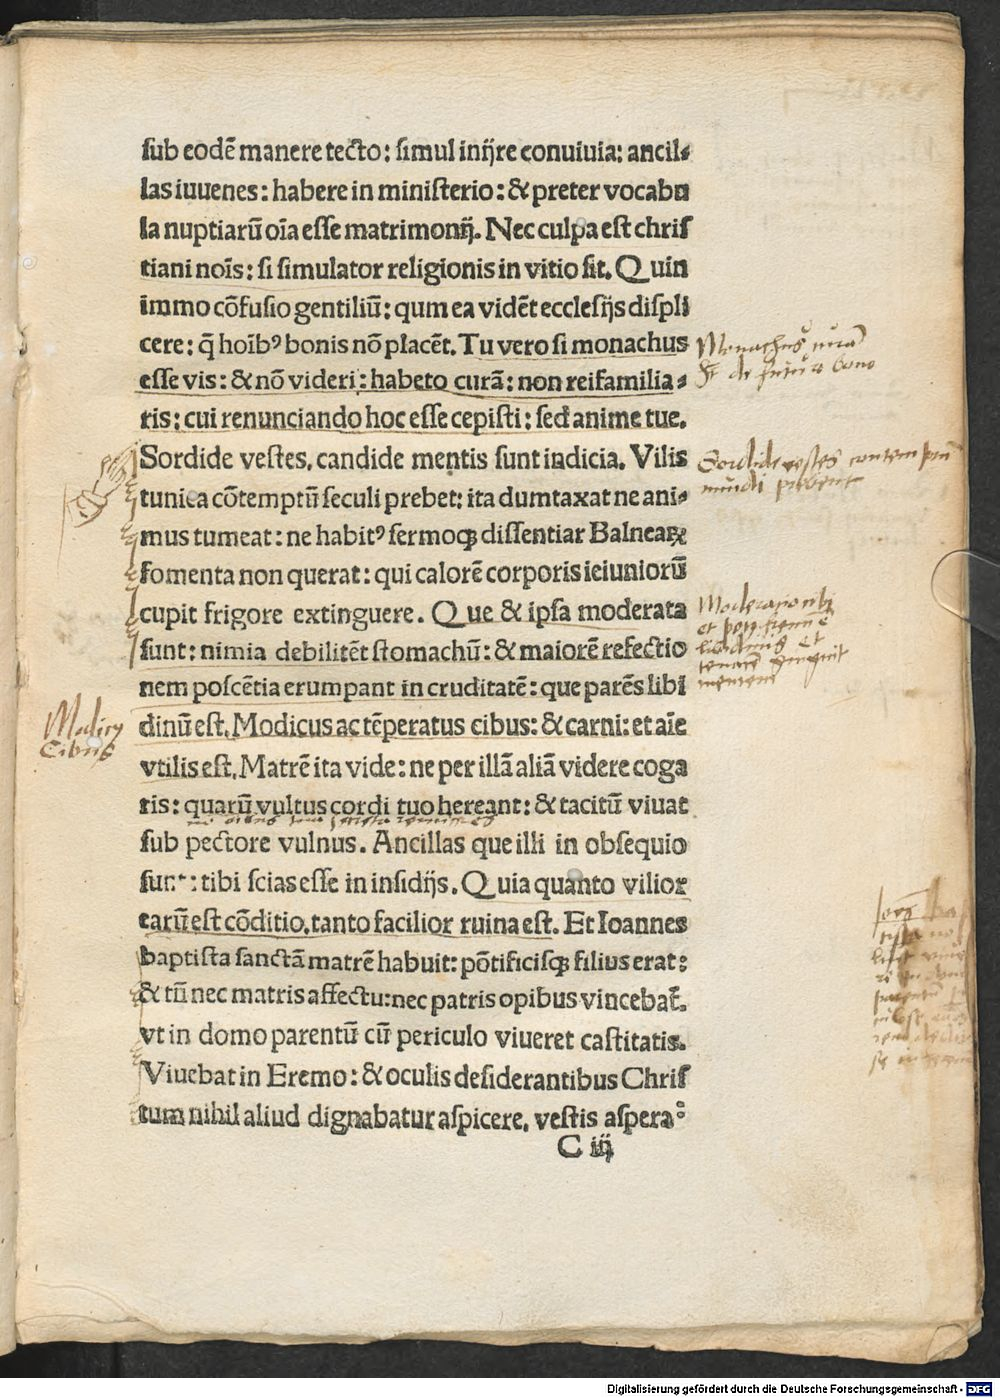 sub eodē manere tecto: simul inijre conuiuia: ancil-
las iuuenes: habere in ministerio: & preter vocabu
la nuptiarū oīa esse matrimonij. Nec culpa est chris
tiani noīs: si simulator religionis in vitio sit. Quin
immo cōfusio gentiliū: qum ea vidēt ecclesijs displi
cere: q̄ hoībꝰ bonis nō placēt. Tu vero si monachus
esse vis: & nō videri: habeto curā: non rei familia-
ris: cui renunciando hoc esse cepisti: sed anime tue.
Sordide vestes. candide mentis sunt indicia. Vilis
tunica cōtemptū seculi prebet: ita dumtaxat ne ani-
mus tumeat: ne habitꝰ sermoqꝫ dissentiar Balnearꝝ
fomenta non querat: qui calorē corporis ieiuniorū
cupit frigore extinguere. Que & ipsa moderata
sunt: nimia debilitēt stomachū: & maiorē refectio
nem poscētia erumpant in cruditatē: que parēs libi
dinū est. Modicus ac tēperatus cibus: & carni: et aīe
vtilis est. Matrē ita vide: ne per illā aliā videre coga
ris: quarū vultus cordi tuo hereant: & tacitū viuat
sub pectore vulnus. Ancillas que illi in obsequio
sunt: tibi scias esse in insidijs. Quia quanto vilior
earū est cōditio. tanto facilior ruina est. Et Ioannes
baptista sanctā matrē habuit: pōtificisqꝫ filius erat:
& tn̄ nec matris affectu: nec patris opibus vincebat̄.
vt in domo parentū cū periculo viueret castitatis.
Viuebat in Eremo: & oculis desiderantibus Chris
tum nihil aliud dignabatur aspicere. vestis aspera:
C iij
Monachus curā
de futuro bono
Sordide vestes contemptū
mūdi prebent
et
mentem
Modicus
Cibus
Digitalisierung gefördert durch die Deutsche Forschungsgemeinschaft - DFG